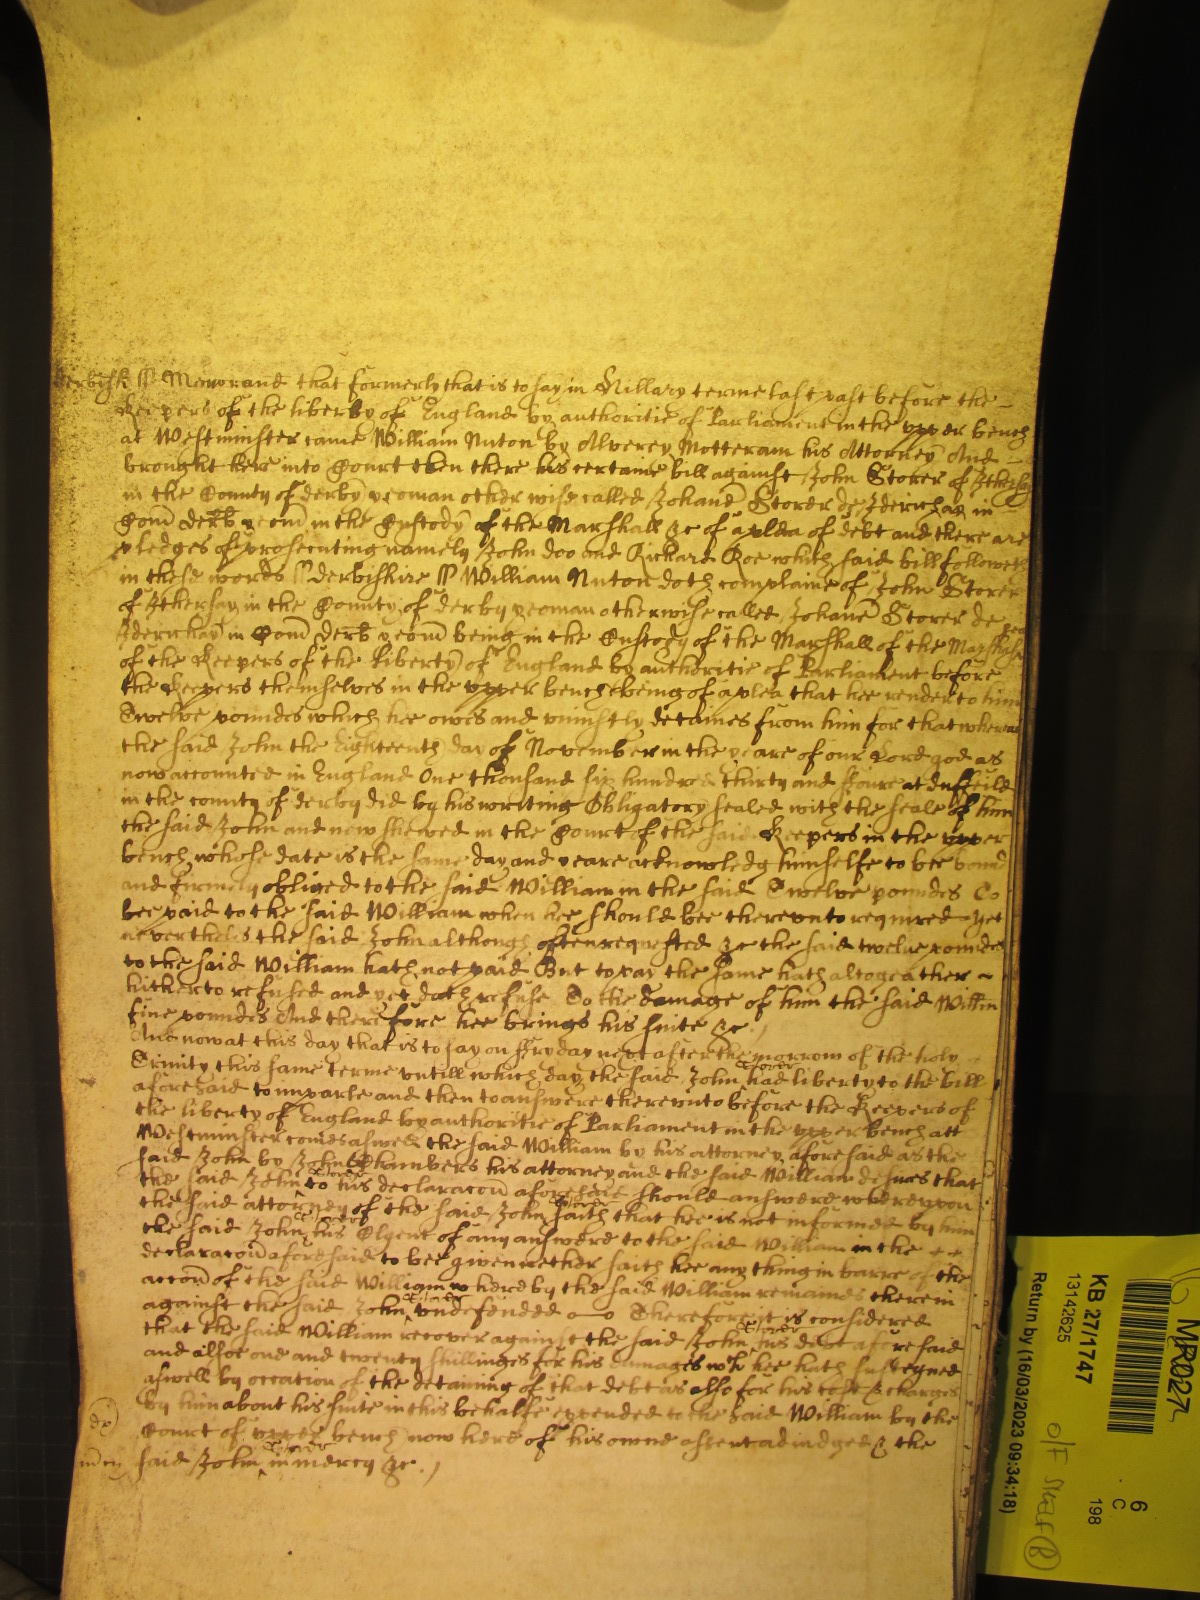 Derbish ss Memorand that formerly that is to say in Hillary terme last past before the
Keepers of the liberty of England by authoritie of Parliament in the upper bench
at Westminster came William Nuton by Alverey Motteram his Attorney And
brought here into Court then there his certaine bill against John Storer of
in the County of derby yeoman other wise called Johane Storer de in
Com derb yeom in the Custody of the Marshall &c of a plea of debt and there are
pledges of prosecuting namely John doo and Richard Roe which said bill followeth
in these words ss derbishire ss William Nuton doth complaine of John Storer
of in the County of derby yeoman otherwise called Johane Storer de
in Com derb yeom being in the Custody of the Marshall of the
of the Keepers of the liberty of England by authoritie of Parliament before
the Keepers themselves in the upper bench being of a plea that hee render to him
Twelve poundes which hee owes and uniustly detaines from him for that whereas
the said John the Eighteenth day of November in the yeare of our Lord god as
now accounted in England One thousand six hundred thirty and foure at duffeild
in the county of derby did by his writing Obligatory sealed with the seale of him
the said John and now shewed in the Court of the said Keepers in the upper
bench whose date is the same day and yeare acknowledg himselfe to bee bound
and firmely obliged to the said William in the said Twelve poundes To
bee paid to the said William when hee should bee thereunto required yet
neverthelis the said John although often requested &c the said twelve poundes
to the said William hath not paid But to pay the same hath altogeather
hitherto refused and yet doth refuse To the damage of him the said Willm
five poundes And therefore hee brings his suite &c
And now at this day that is to say on Fryday next after the morrow of the holy
Trinity this same terme untill which day the said John Storer had liberty to the bill
aforesaid to imparle and then to answere thereunto before the Keepers of
the liberty of England by authoritie of Parliament in the upper bench att
Westminster comes aswell the said William by his attorney aforesaid as the
said John by John Chambers his attorney and the said William desires that
the said John Storer to his declaracon aforesaid should answere whereupon
the said attorney of the said John Storer saith that hee is not informed by him
the said John Storer his Clyent of any answere to the said William in the
declaracon aforesaid to bee given nether saith hee any thing in barre of the
accon of the said William whereby the said William remaines therein
against the said John Storer undefended Therefore it is considered
that the said William recover against the said John Storer his debt aforesaid
and allsoe one and twenty shillinges for his damages wch hee hath susteyned
aswell by occation of the detaining of that debt as also for his cost & charges
by him about his suite in this behalfe expended to the said William by the
Court of upper bench now here of his owne assent adiudged & the
said John Storer in mercy &c
KB 27/1747
13142625
Return by (16/03/2023 09:34:18)
6
C
198